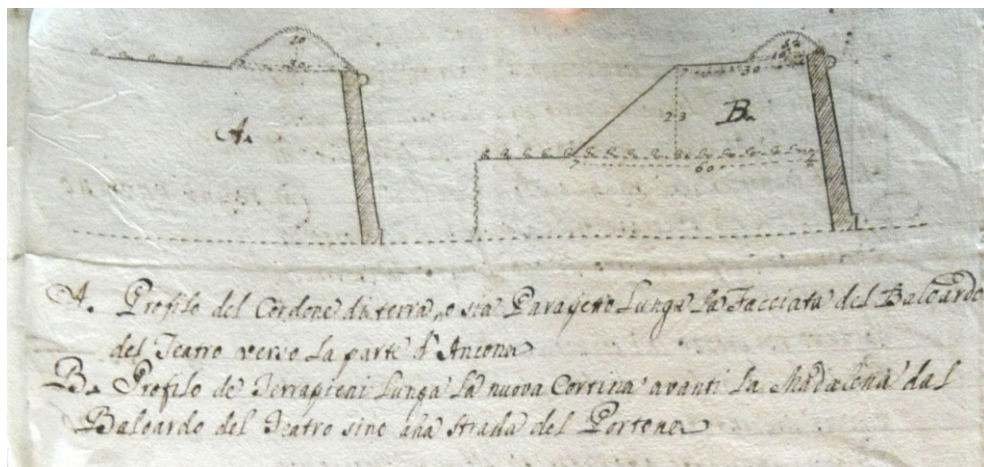 20
30
A.
30
23
B.
60
A. Profilo del Cordone di terra, o sia Parapetto Lunga La Facciata del Baloardo
del Teatro verso La parte d'Ancona
B. Profilo de Terrapieni Lunga La nuova Cortina avanti La Madalena dal
Baloardo del Teatro sino alla Strada del Portone